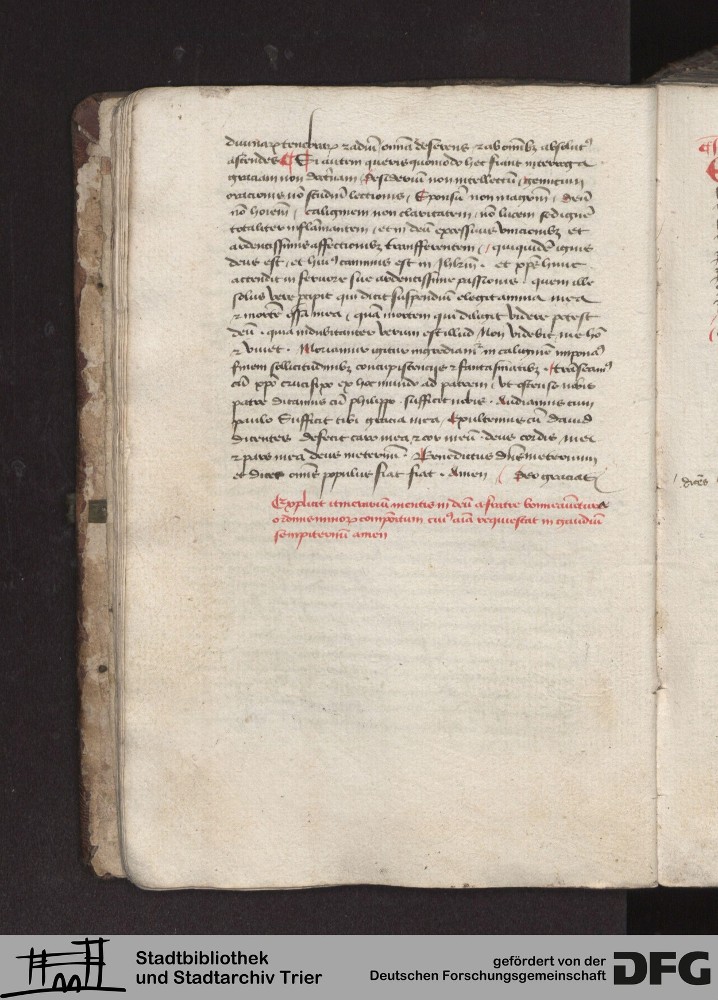 diuinarꝝ tenebrarꝝ radiū omīa deserens ⁊ ab omībꝫ absolutꝰ
ascendes Si autem queris quomodo hec fiant interroga
graciam non doctrīam / desideriū non intellectū / gemitum
oracionis nō studiū lectionis / Sponsū non magrm̄ / deū
nō hoīem / caliginem non claritatem / nō lucem sed ignē
totaliter inflāmantem / et in deū excessiuis unctionibꝫ et
ardentissimis affectionibꝫ transferentem / qui quidē ignis
deus est / et huiꝰ caminus est in Jhrlm̄ . et xp̄s hunc
accendit in feruore sue ardentissime passionis . quem ille
solus vere ꝑcipit qui dicit suspendiū elegit anima mea
⁊ mortē ossa mea / quā mortem qui diligit videre potest
deū . quia indubitanter verum est illud Non videbit me hō
⁊ viuet . Moriamur igitur ingrediamʳ in caliginē imponamꝰ
finem sollicitudinibꝫ concupiscencijs ⁊ fantasmatibꝫ . Transeamꝰ
cū xp̄o crucifixo ex hoc mundo ad patrem / vt ostenso nobis
patre dicamus cū philippo . sufficit nobis . Audiamus cum
paulo Sufficit tibi gracia mea / Exultemus cū dauid
dicentes defecit caro mea ⁊ cor meū . deus cordis mei
⁊ pars mea deus in eternū . Benedictus dn̄s in eternum
et dicet omīs populus fiat fiat . Amen / Deo gracias
Explicit itinerariū mentis in deū a fratre bonauentura
ordinis minorꝝ compositum cuiꝰ aīa requiescat in gaudiū
sempiternū amen
dicēs
Stadtbibliothek
und Stadtarchiv Trier
gefördert von der
Deutschen Forschungsgemeinschaft
DFG